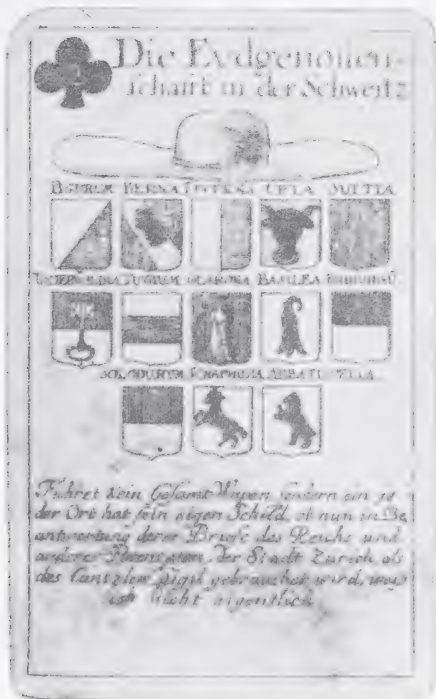 Die Eydgenossen-
schafft in der Schweitz
BERNA UREA SUITIA
TUGIUM GLARONA BASILEA
SOLODURUM SCAPHUSIA ABBATISCELLA
Führet kein Gesamt Wapen sondern ein ie,
der Ort hat sein eigen Schild, ob nun in Be,
antwortung derer Briefe des Reichs und
anderer Potentaten, der Stadt Zürich als
des Cantzlers Sigil gebrauchet wird, weis
ich nicht eigentlich